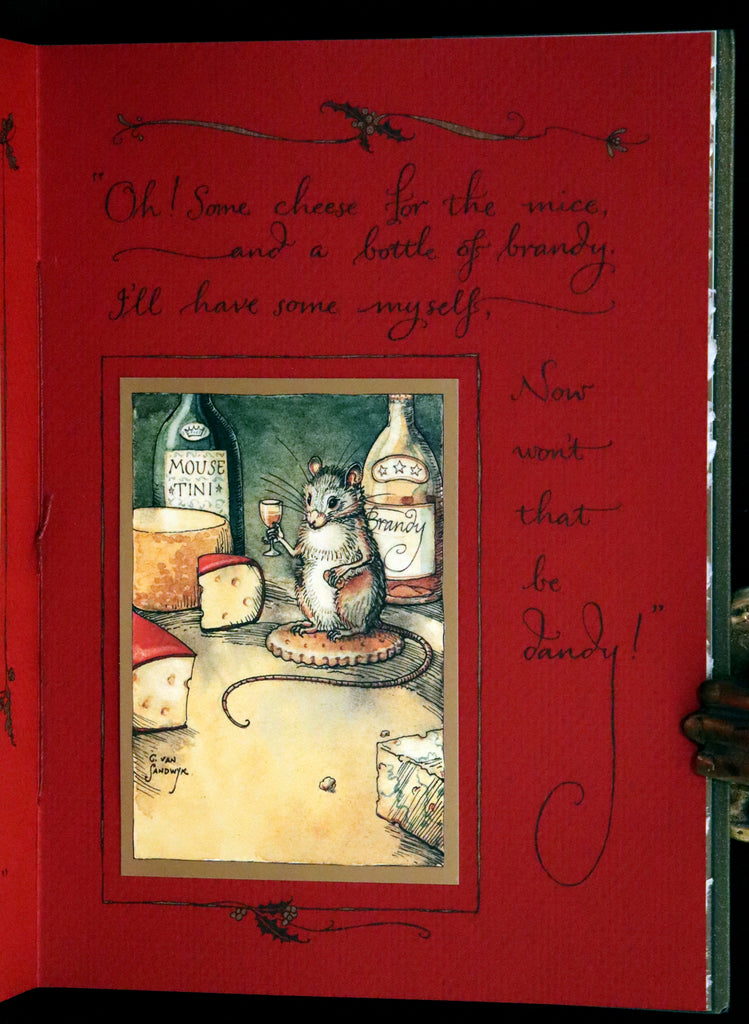 "Oh! Some cheese for the mice,
and a bottle of brandy.
I'll have some myself,
Now
won't
that
be
dandy!"
MOUSE
TINI
Brandy
G. VAN
SANDWYK